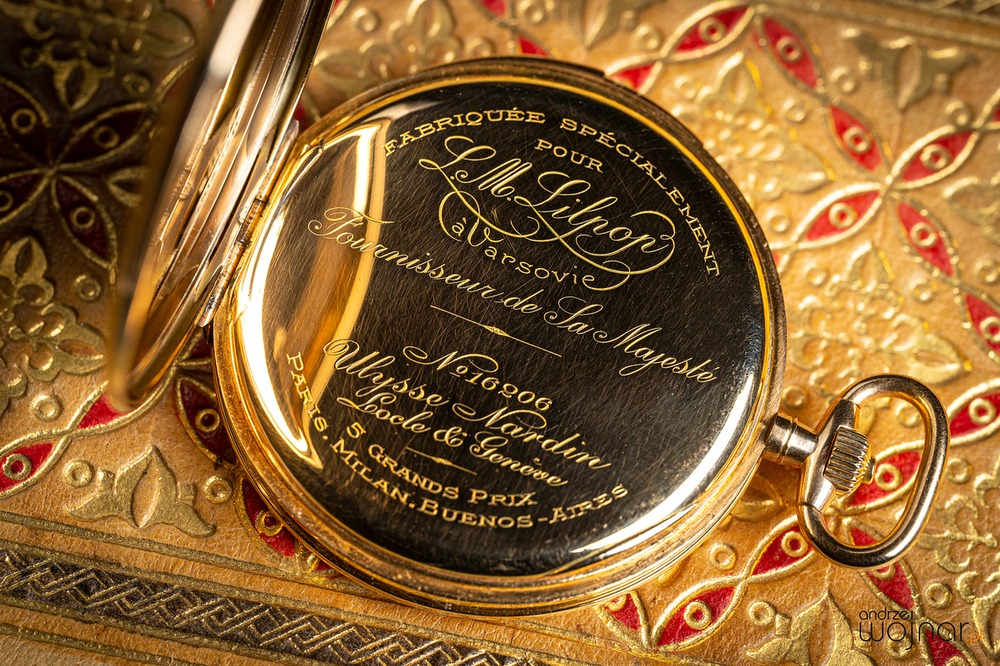 FABRIQUÉE SPÉCIALEMENT
POUR
L.M. Lilpop
à Varsovie
Fournisseur de Sa Majesté
No 16206
Ulysse Nardin
Locle & Genève
5 GRANDS PRIX
PARIS. MILAN. BUENOS-AIRES
andrzej
wojnar